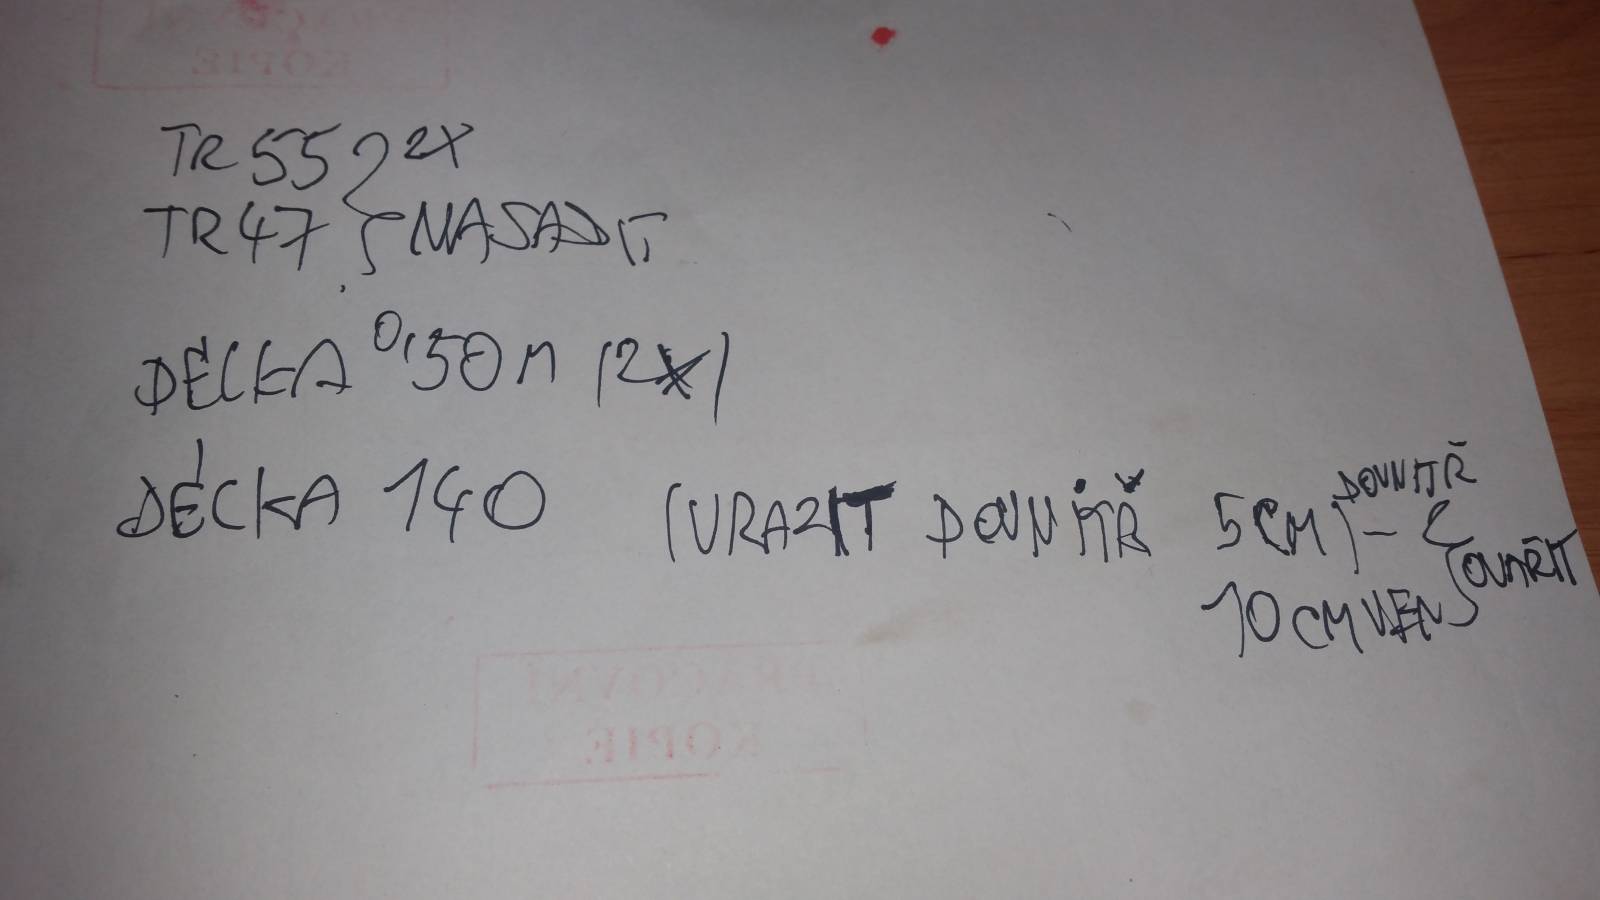 TR 55 2X
TR 47 NASADIT
DÉCKA 0,50 M (2X)
DÉCKA 140 (VRAZIT DOVNITŘ 5CM) - DOVNITŘ
10 CM VEN
PRACOVNÍ
KOPIE
KOPIE